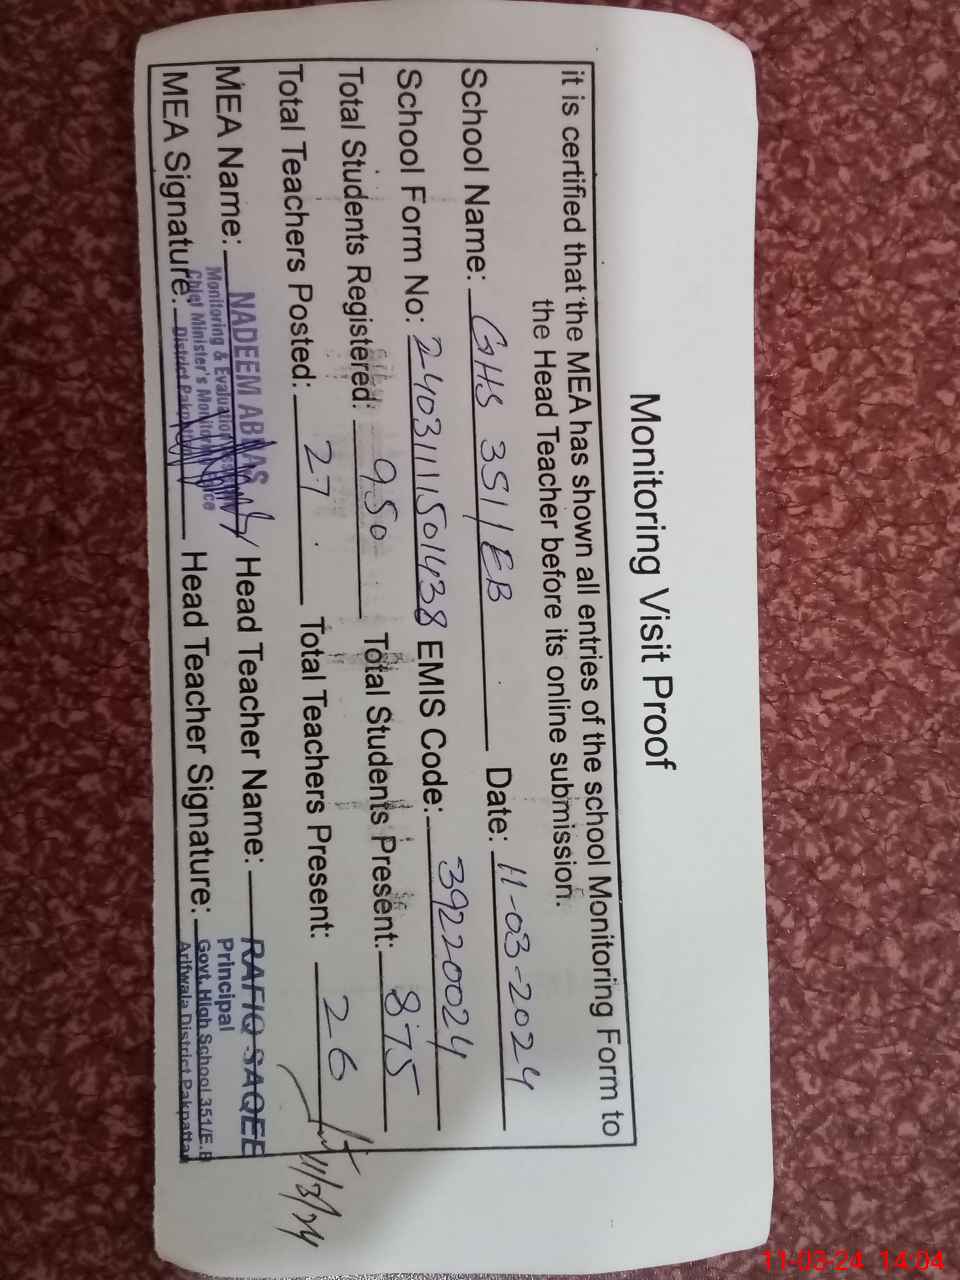 Monitoring Visit Proof
it is certified that the MEA has shown all entries of the school Monitoring Form to
the Head Teacher before its online submission.
School Name: GHS 351/EB Date: 11-03-2024
School Form No: 2403111501438 EMIS Code: 39220024
Total Students Registered: 950 Total Students Present: 875
Total Teachers Posted: 27 Total Teachers Present: 26
MEA Name: NADEEM ABBAS Head Teacher Name: RAFIQ SAQEE
Monitoring & Evaluation
Principal
MEA Signature: Chief Minister's Head Teacher Signature: Govt. High School 351/E.B
District Arifwala District Pakpattan
11/3/24
11-03-24 14:04